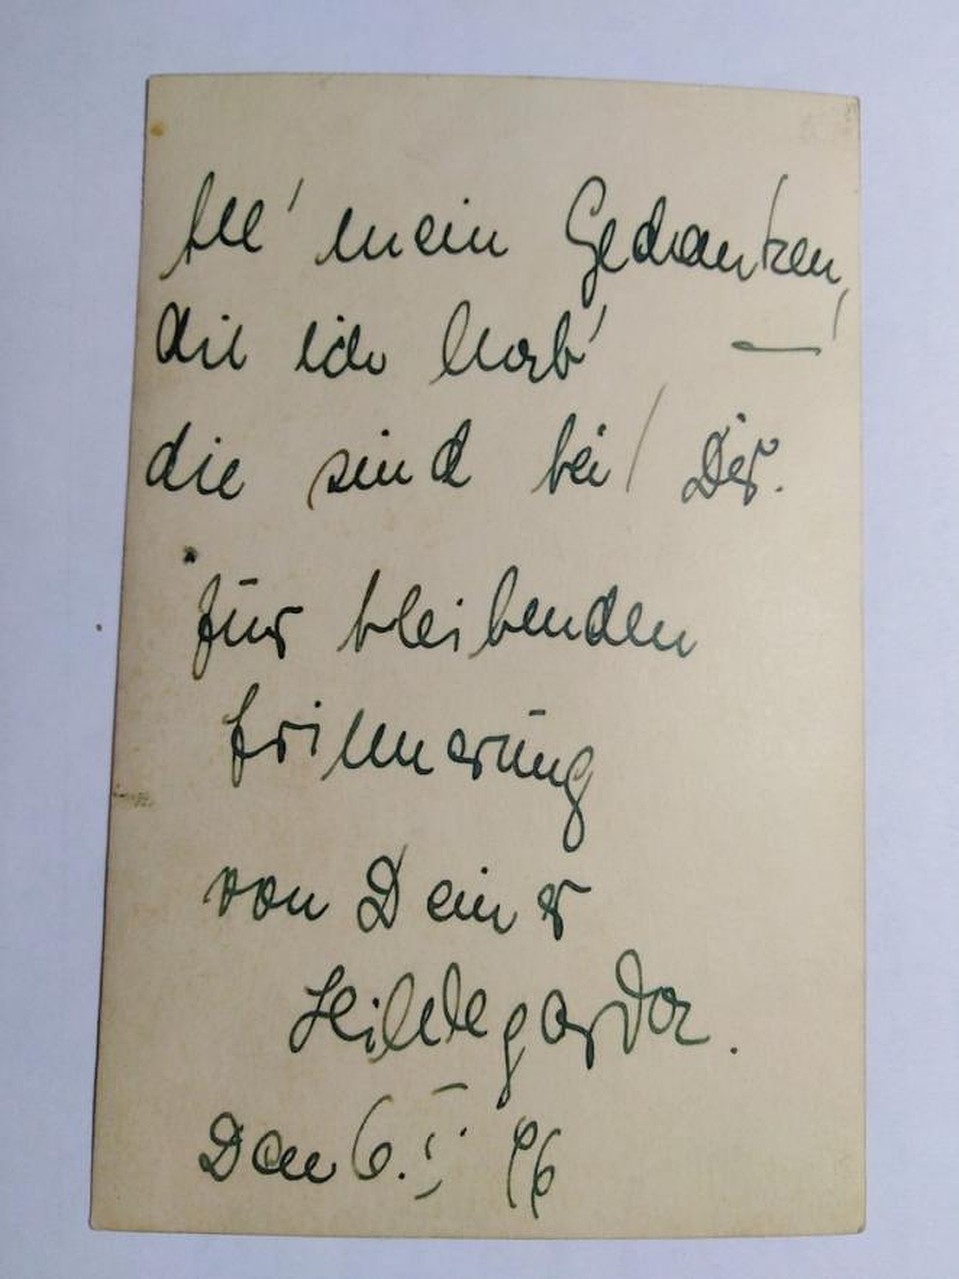 All' mein Gedanken,
die ich hab' —
die sind bei Dir.
für bleibenden
Erinnerung
von Deiner
Hildegarda.
Den 6. I.